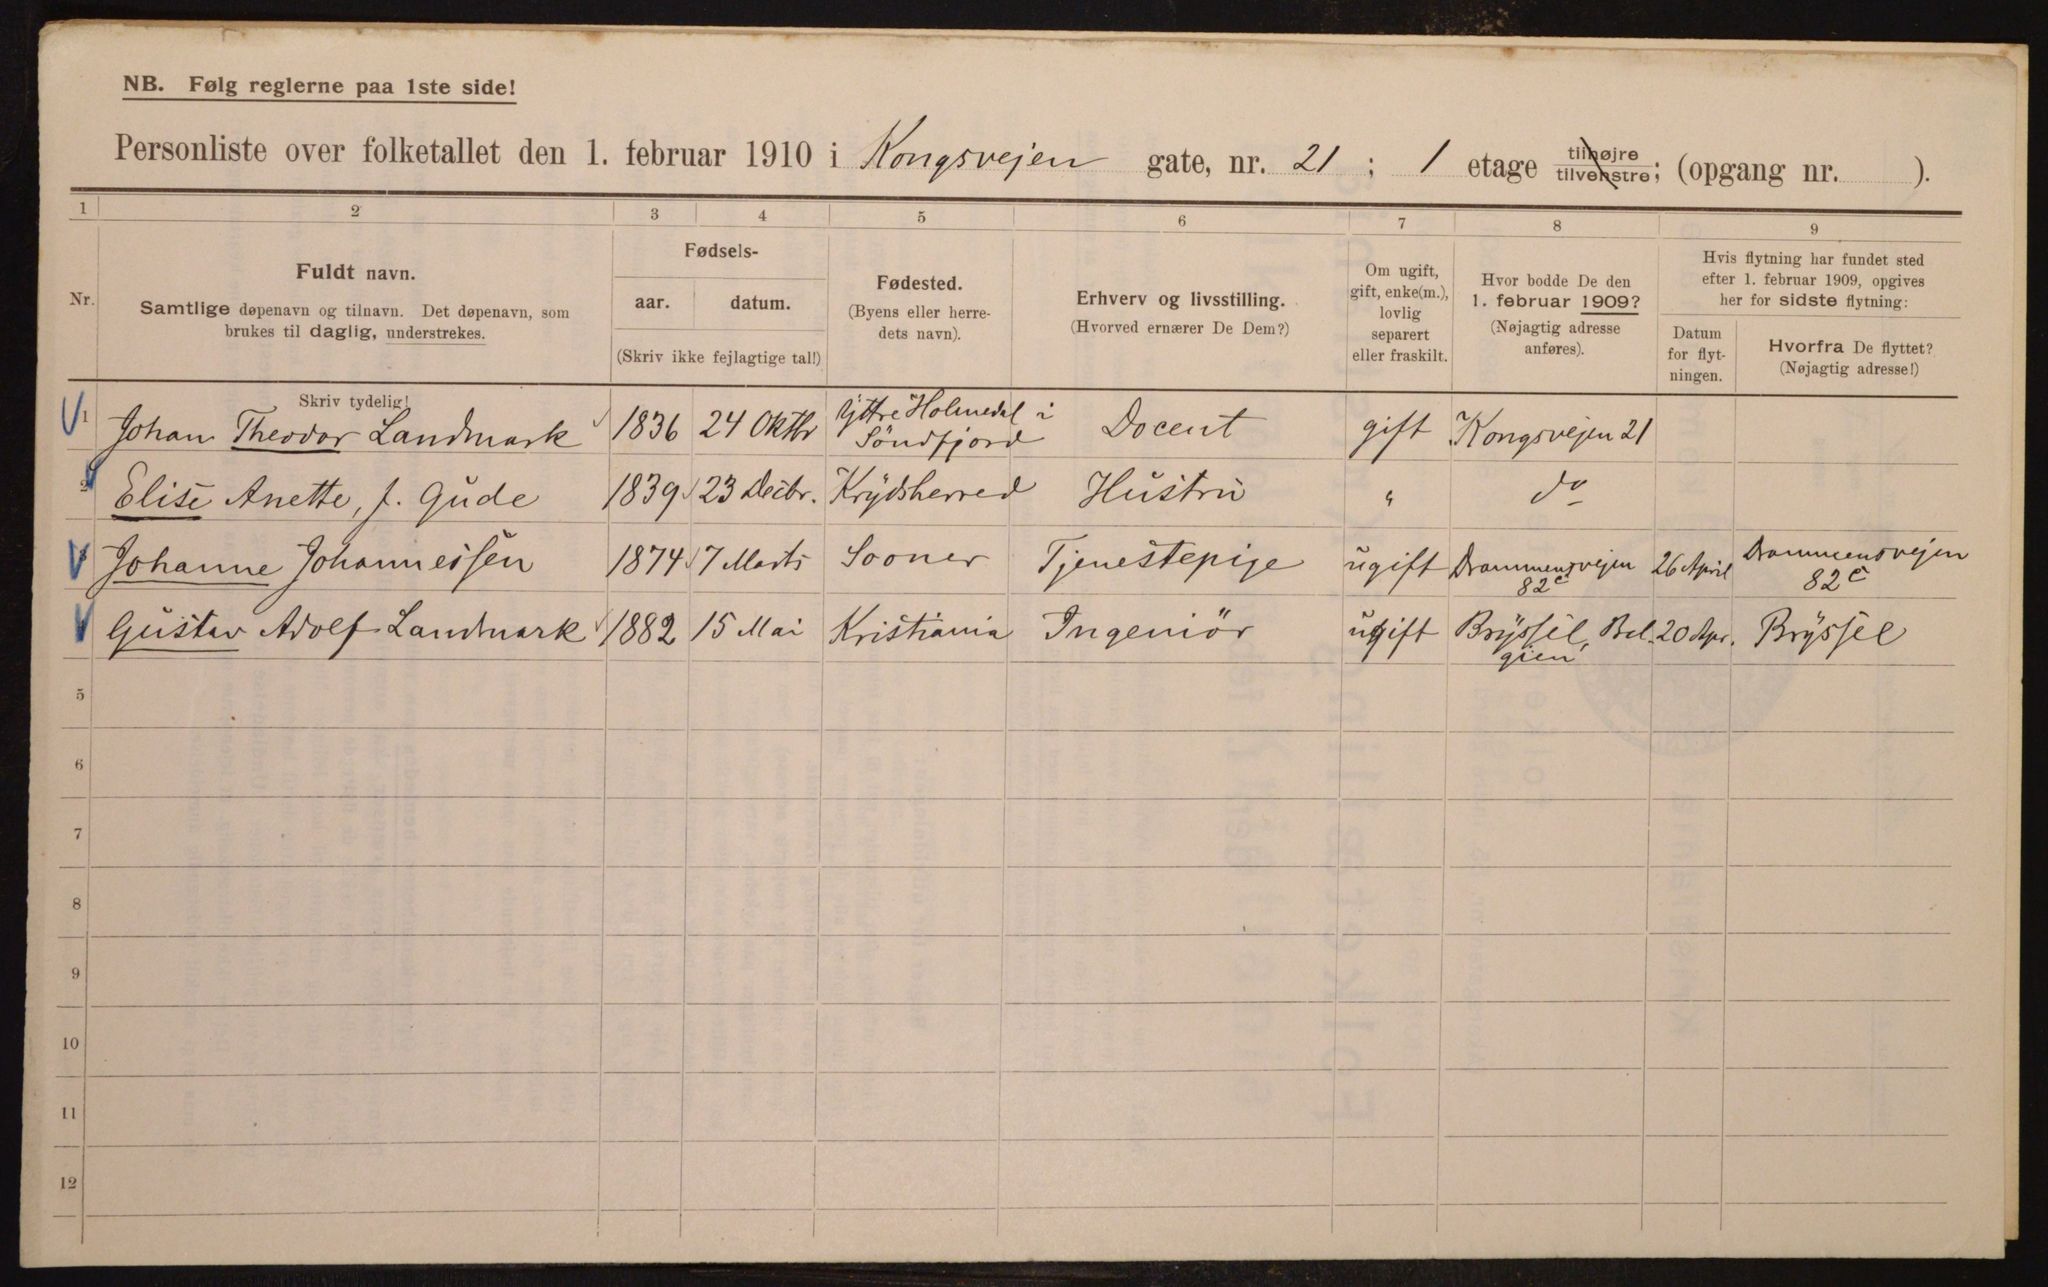 NB. Følg reglerne paa 1ste side!
Personliste over folketallet den 1. februar 1910 i Kongsvejen gate, nr. 21 ; 1 etage tilhøjre tilvenstre; (opgang nr. ).
1 2 3 4 5 6 7 8 9
Nr.
Fuldt navn.
Samtlige døpenavn og tilnavn. Det døpenavn, som
brukes til daglig, understrekes.
Skriv tydelig!
Fødsels-
aar. datum.
(Skriv ikke fejlagtige tal!)
Fødested.
(Byens eller herre-
dets navn).
Erhverv og livsstilling.
(Hvorved ernærer De Dem?)
Om ugift,
gift, enke(m.),
lovlig
separert
eller fraskilt.
Hvor bodde De den
1. februar 1909?
(Nøjagtig adresse
anføres).
Hvis flytning har fundet sted
efter 1. februar 1909, opgives
her for sidste flytning:
Datum
for flyt-
ningen.
Hvorfra De flyttet?
(Nøjagtig adresse!)
1 Johan Theodor Landmark 1836 24 Oktbr Yttre Holmedal i Söndfjord Docent gift Kongsvejen 21
2 Elise Anette, f. Gude 1839 23 Decbr. Krydsherred Hustru " do
Johanne Johannessen 1874 7 Marts Sooner Tjenestepige ugift Drammensvejen 82c 26 April Drammensvejen 82c
Gustav Adolf Landmark 1882 15 Mai Kristiania Ingeniör ugift Bryssel, Belgien 20 Apr. Bryssel
5
6
7
8
9
10
11
12